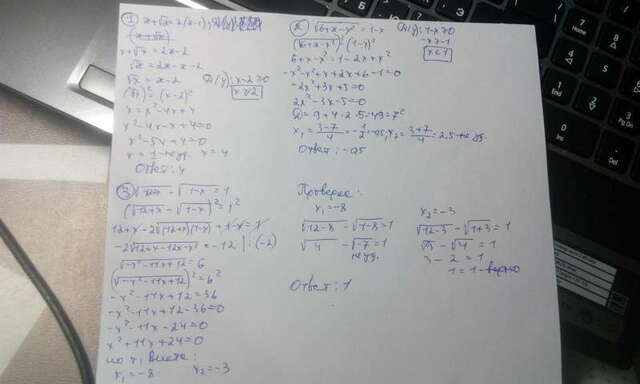 ① x+√x=2(x-1);
x+√x=2x-2
√x=2x-x-2
√x=x-2 О/у/: x-2≥0
(√x)²=(x-2)² x≥2
x=x²-4x+4
x²-4x-x+4=0
x²-5x+4=0
x=1-не уд. x=4
Ответ: 4
② √6+x-x²=1-x О/у/: 1-x≥0
(√6+x-x²)²=(1-x)² -x≥-1
6+x-x²=1-2x+x² x≤1
-x²-x²+x+2x+6-1=0
-2x²+3x+5=0
2x²-3x-5=0
D=9+4·2·5=49=7²
x₁=3-7/4=-1/2=-0,5; x₂=3+7/4=2,5 не уд.
Ответ: -0,5
③ √12+x-√1-x=1
(√12+x-√1-x)²=1²
12+x-2√(12+x)(1-x)+1-x=1
-2√12+x-12x-x²=-12 |:(-2)
√-x²-11x+12=6
(√-x²-11x+12)²=6²
-x²-11x+12=36
-x²-11x+12-36=0
-x²-11x-24=0
x²+11x+24=0
по т. Виета:
x₁=-8 x₂=-3
Проверка:
x₁=-8
√12-8-√1-8=1
√4-√-7=1
не уд.
x₂=-3
√12-3-√1+3=1
√9-√4=1
3-2=1
1=1-верно
Ответ: 1